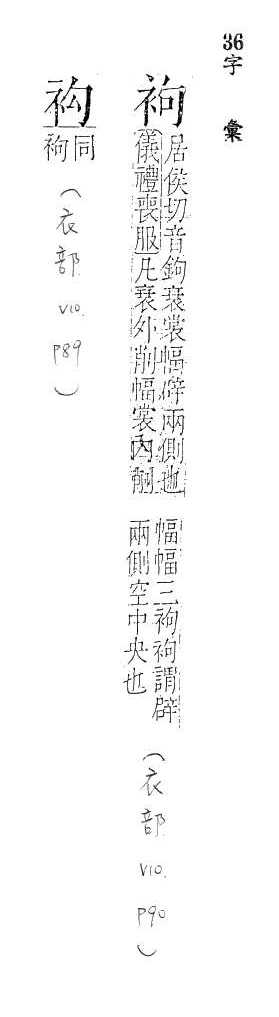 36字彙
袧
居侯切音鉤衰裳幅辟兩側也
儀禮喪服凡衰外削幅裳內削
幅幅三袧袧謂辟
兩側空中央也
(衣部 V10. P90)
䘛
同
袧
(衣部 V10. P89)